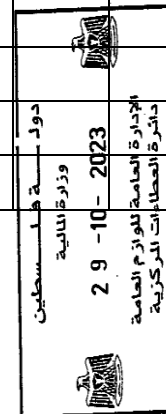 دولة فلسطين
وزارة المالية
2 9 -10- 2023
الإدارة العامة للوازم العامة
دائرة العطاءات المركزية